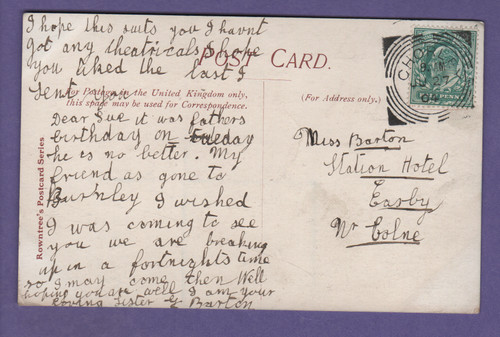 I hope this suits you I havnt
got any theatricals I hope
you liked the last I
sent you
POST CARD.
For Postage in the United Kingdom only,
this space may be used for Correspondence.
(For Address only.)
Rowntree's Postcard Series
Dear Sue it was fathers
birthday on Tueday
he is no better. My
friend as gone to
Burnley I wished
I was coming to see
you we are breaking
up in a fortnights time
so I may come then Well
hoping you are well I am your
loving sister Barton
Miss Barton
Station Hotel
Earby
Nr Colne
CHO